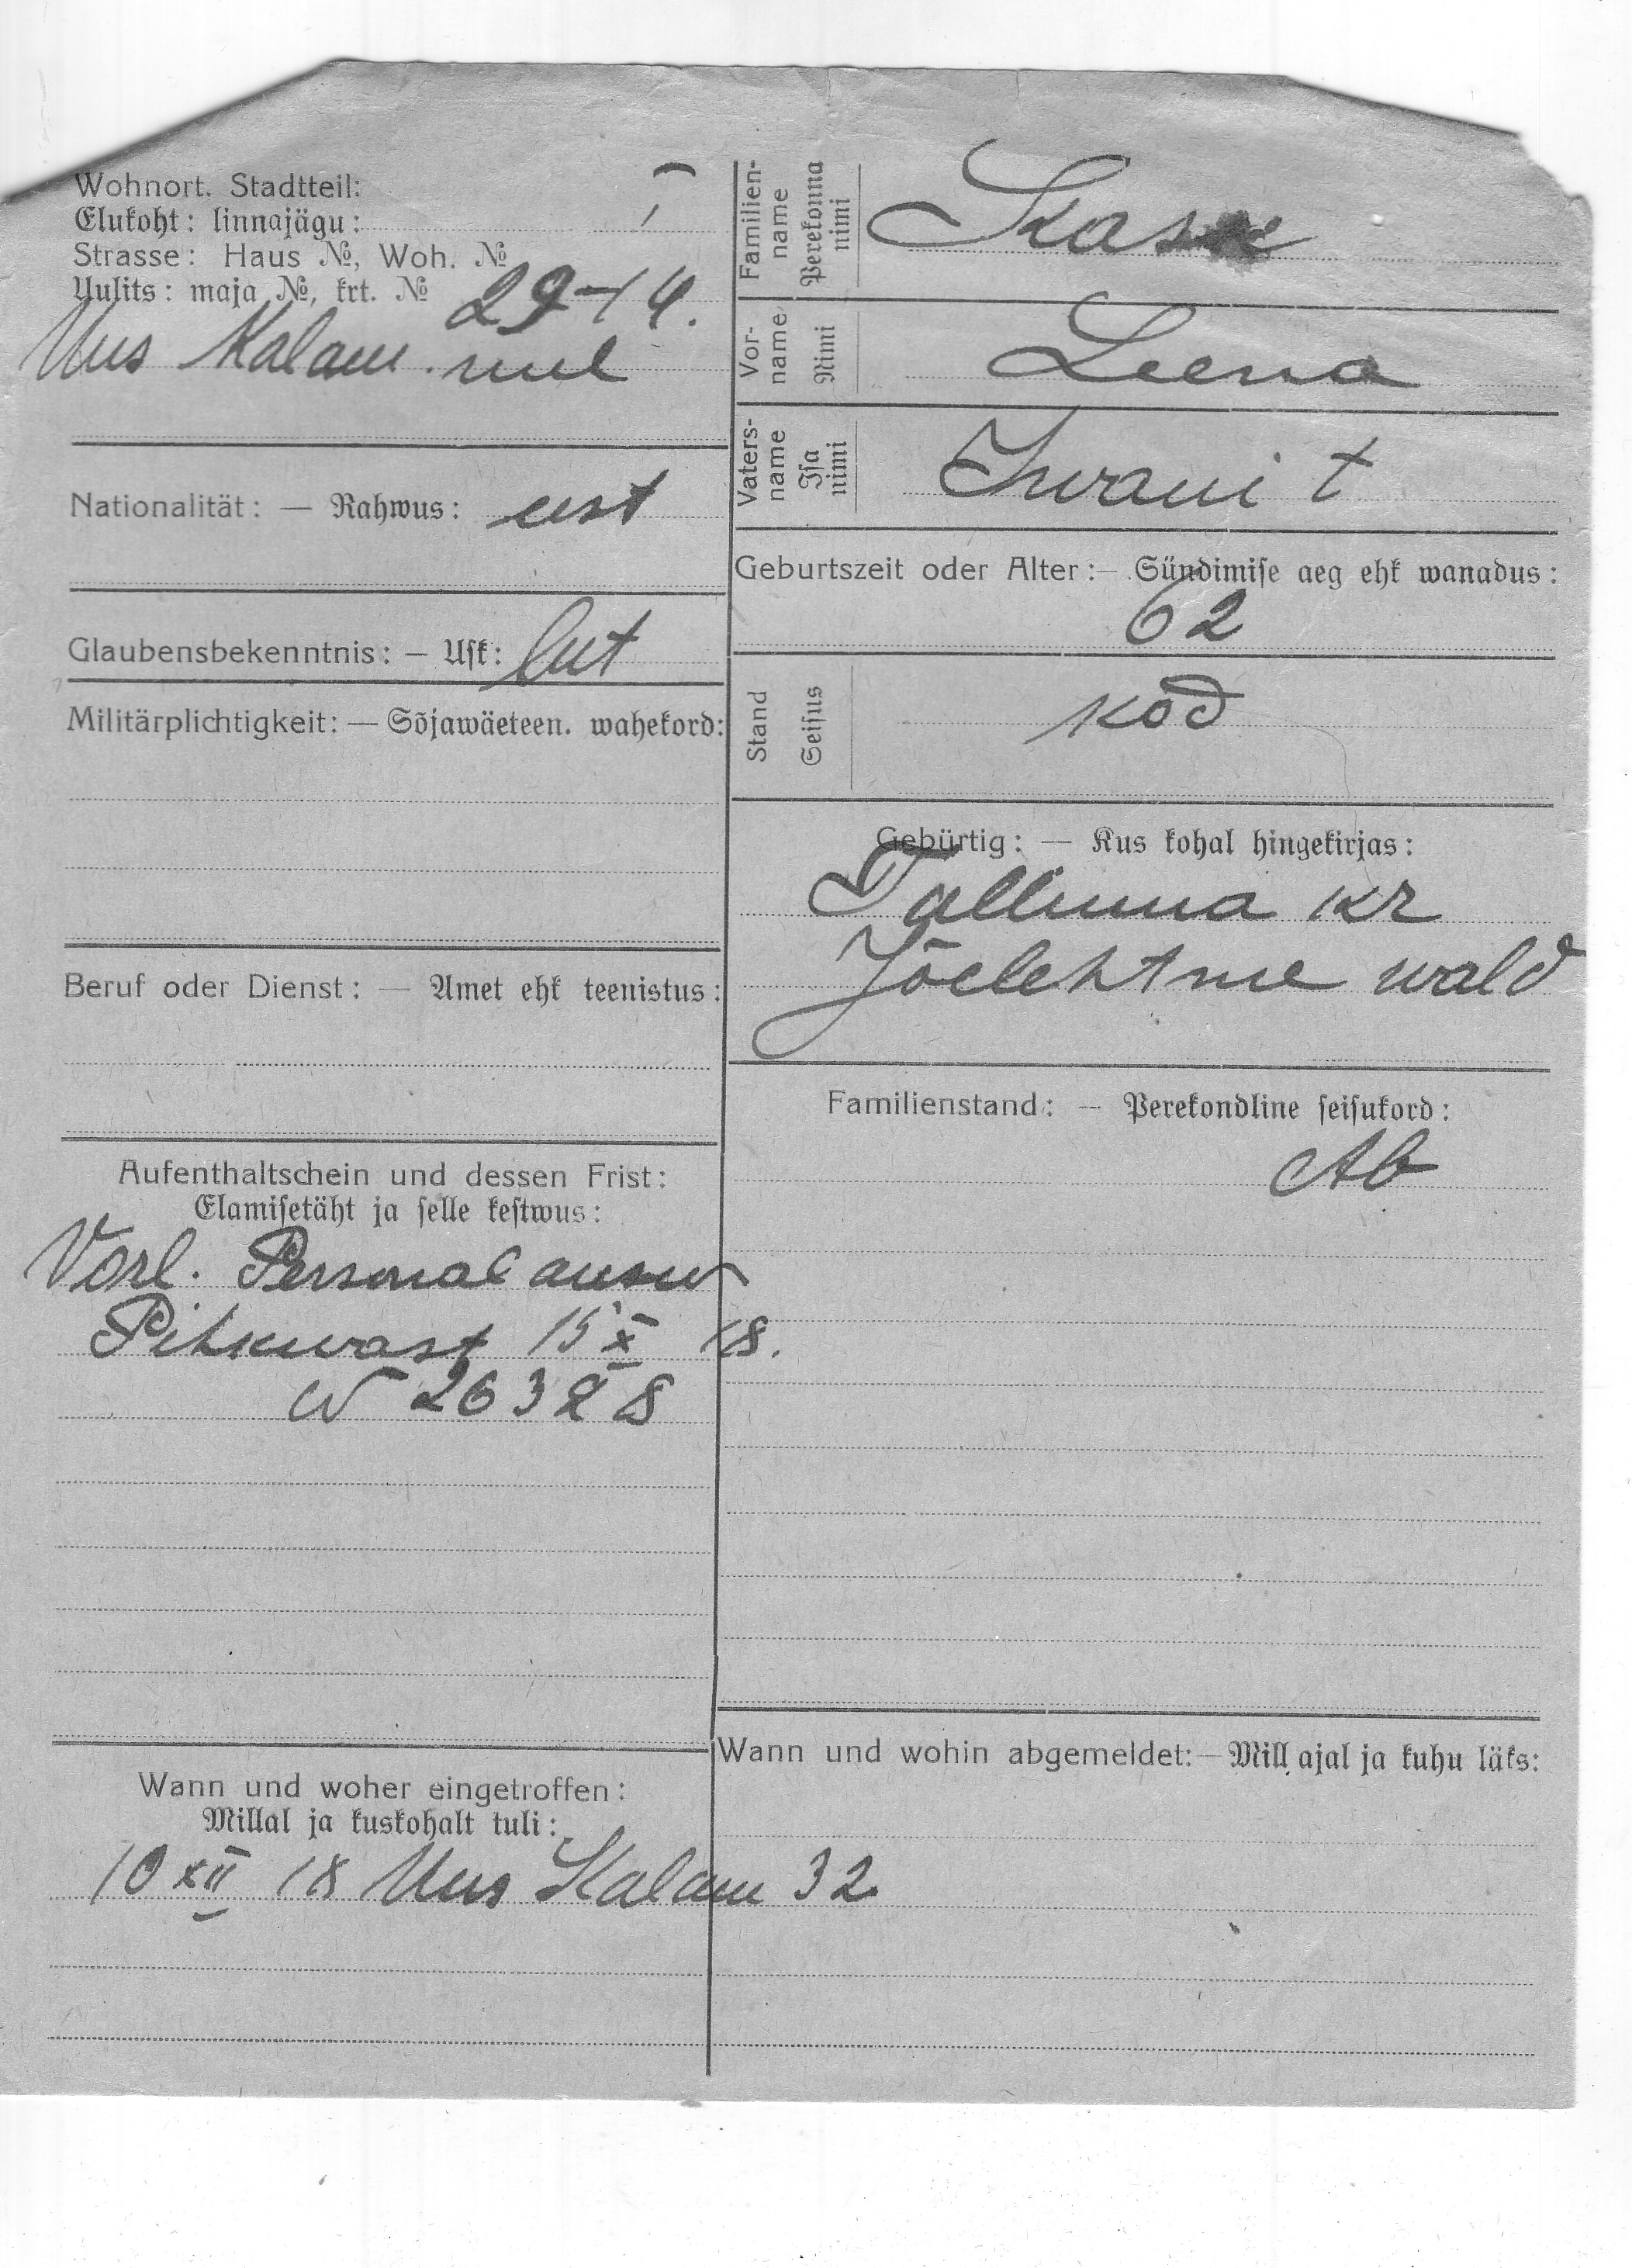 Wohnort. Stadtteil:
Elukoht: linnajägu:
Strasse: Haus №, Woh. №
Uulits: maja №, krt. № 29-14.
Uus Kalam.
Nationalität: — Rahwus: est
Glaubensbekenntnis: — Usk: lut
Militärplichtigkeit: — Sõjawäeteen. wahekord:
Beruf oder Dienst: — Amet ehk teenistus:
Aufenthaltschein und dessen Frist:
Elamisetäht ja selle kestwus:
Vorl. Personal ausw
Pihkwast 15 X 18.
N 26328
Wann und woher eingetroffen:
Millal ja kuskohalt tuli:
10 XII 18 Uus Kalam 32
Familien-
name
Perekonna
nimi
Kask
Vor-
name
Nimi
Leena
Vaters-
name
Isa
nimi
Iwani t
Geburtszeit oder Alter:— Sündimise aeg ehk wanadus:
62
Stand
Seisus
kod
Gebürtig: — Kus kohal hingekirjas:
Tallinna kr
Jõelehtme wald
Familienstand: — Perekondline seisukord:
Ab
Wann und wohin abgemeldet:—Mill ajal ja kuhu läks: